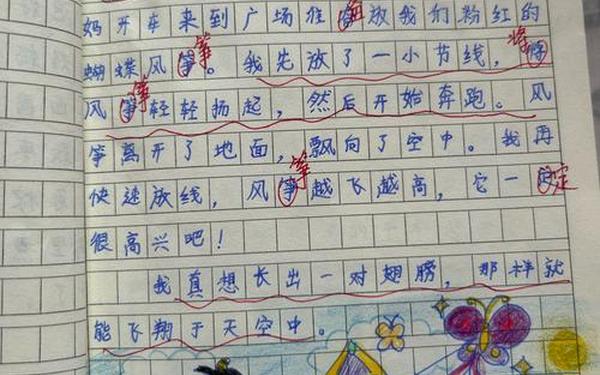 妈开车来到广场准备放我们粉红的
蝴蝶风筝。我先放了一小节线，将
风筝轻轻扬起，然后开始奔跑。风
筝离开了地面，飘向了空中。我再
快速放线，风筝越飞越高，它一定
很高兴吧！
我真想长出一对翅膀，那样就
能飞翔于天空中。